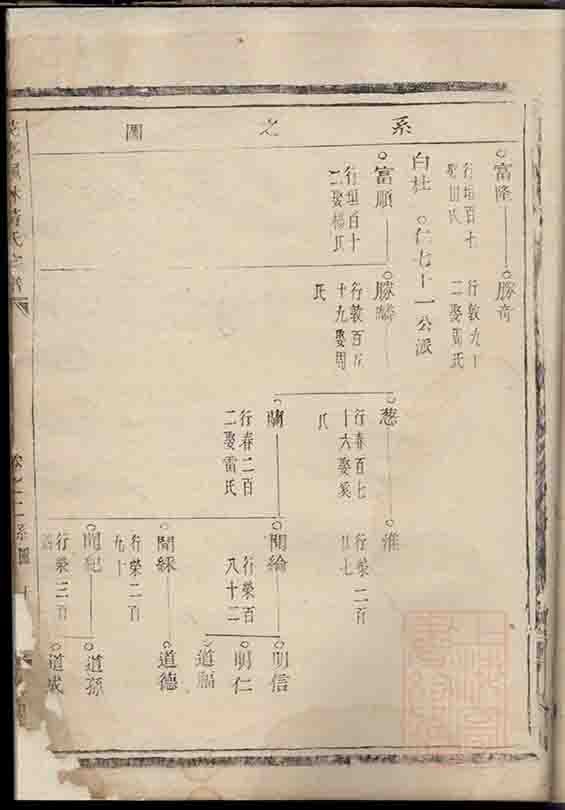 系之圖
富隆
行垣百十
勝奇
行敦九十
二娶周氏
白杜 仁七十一公派
富順
行垣百十
二娶楊氏
勝疇
行敦百五
十九娶周
氏
葱
行春百七
十六娶奚
氏
淮
行榮二百
廿七
蘭
行春二百
二娶雷氏
開綸
行榮百
八十二
明信
明仁
道福
開綵
行榮二百
九十
道德
開紀
行榮二百
道孫
道成
氏宗譜
卷之二系圖